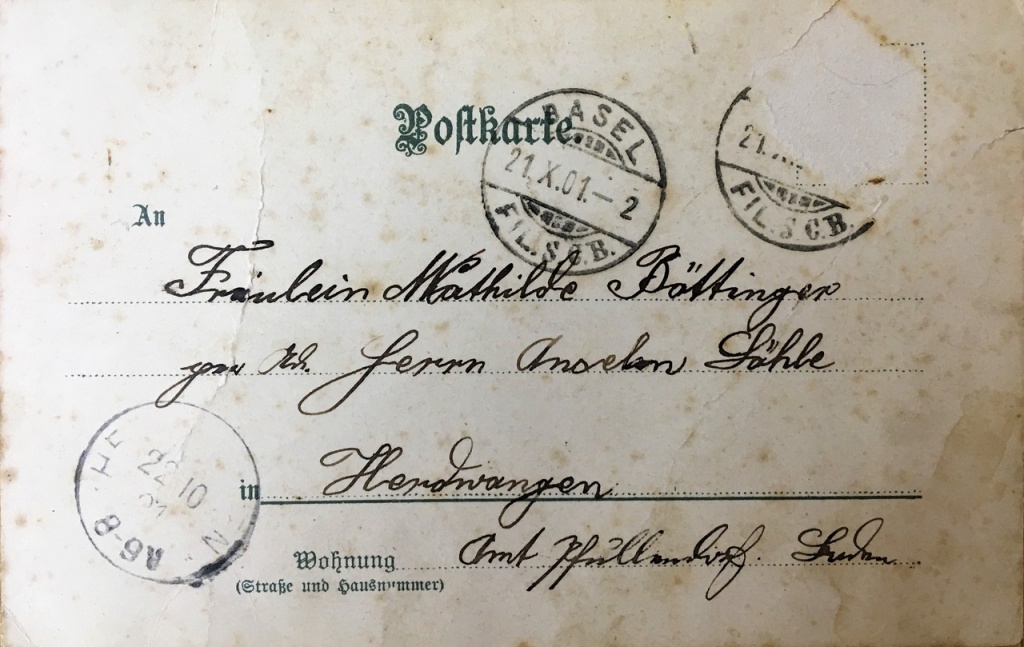 Postkarte
BASEL
21.X.01.–2
FIL.S.C.B.
21.X
FIL.S.C.B.
An
Fräulein Mathilde Böttinger
per Ad. Herrn Anselm
Herdwangen
in
Amt Pfullendorf. Baden.
Wohnung
(Straße und Hausnummer)
22 10
R6-8